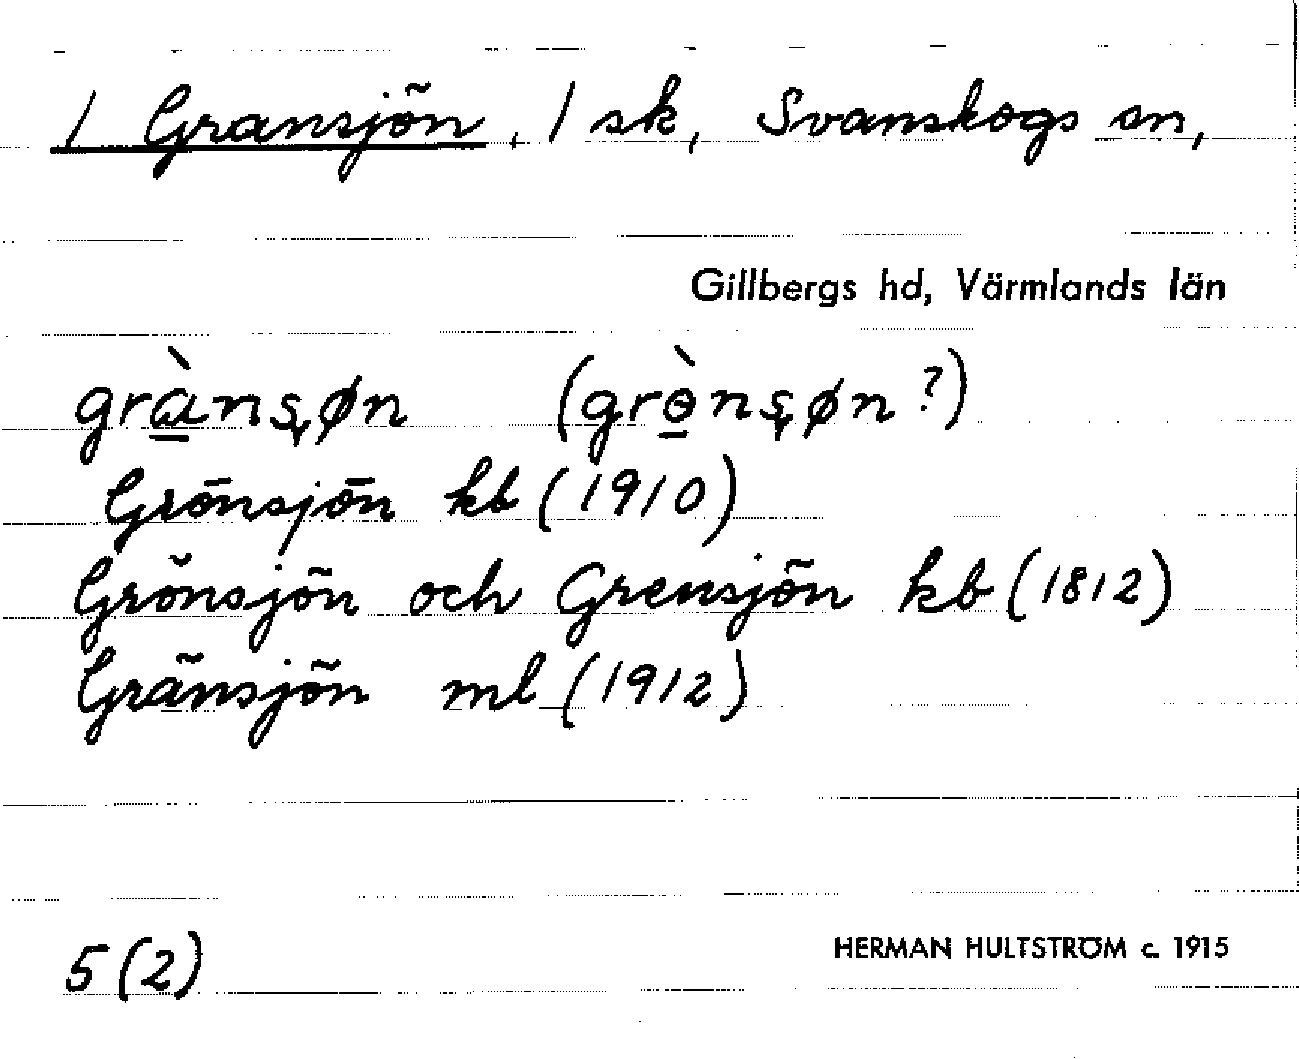 1 Gransjön, 1 sk, Svanskogs sn,
Gillbergs hd, Värmlands län
grànsøn (grènsøn?)
Grönsjön kb (1910)
Grönsjön och Grensjön kb (1812)
Gränsjön ml (1912)
5 (2)
HERMAN HULTSTRÖM c. 1915